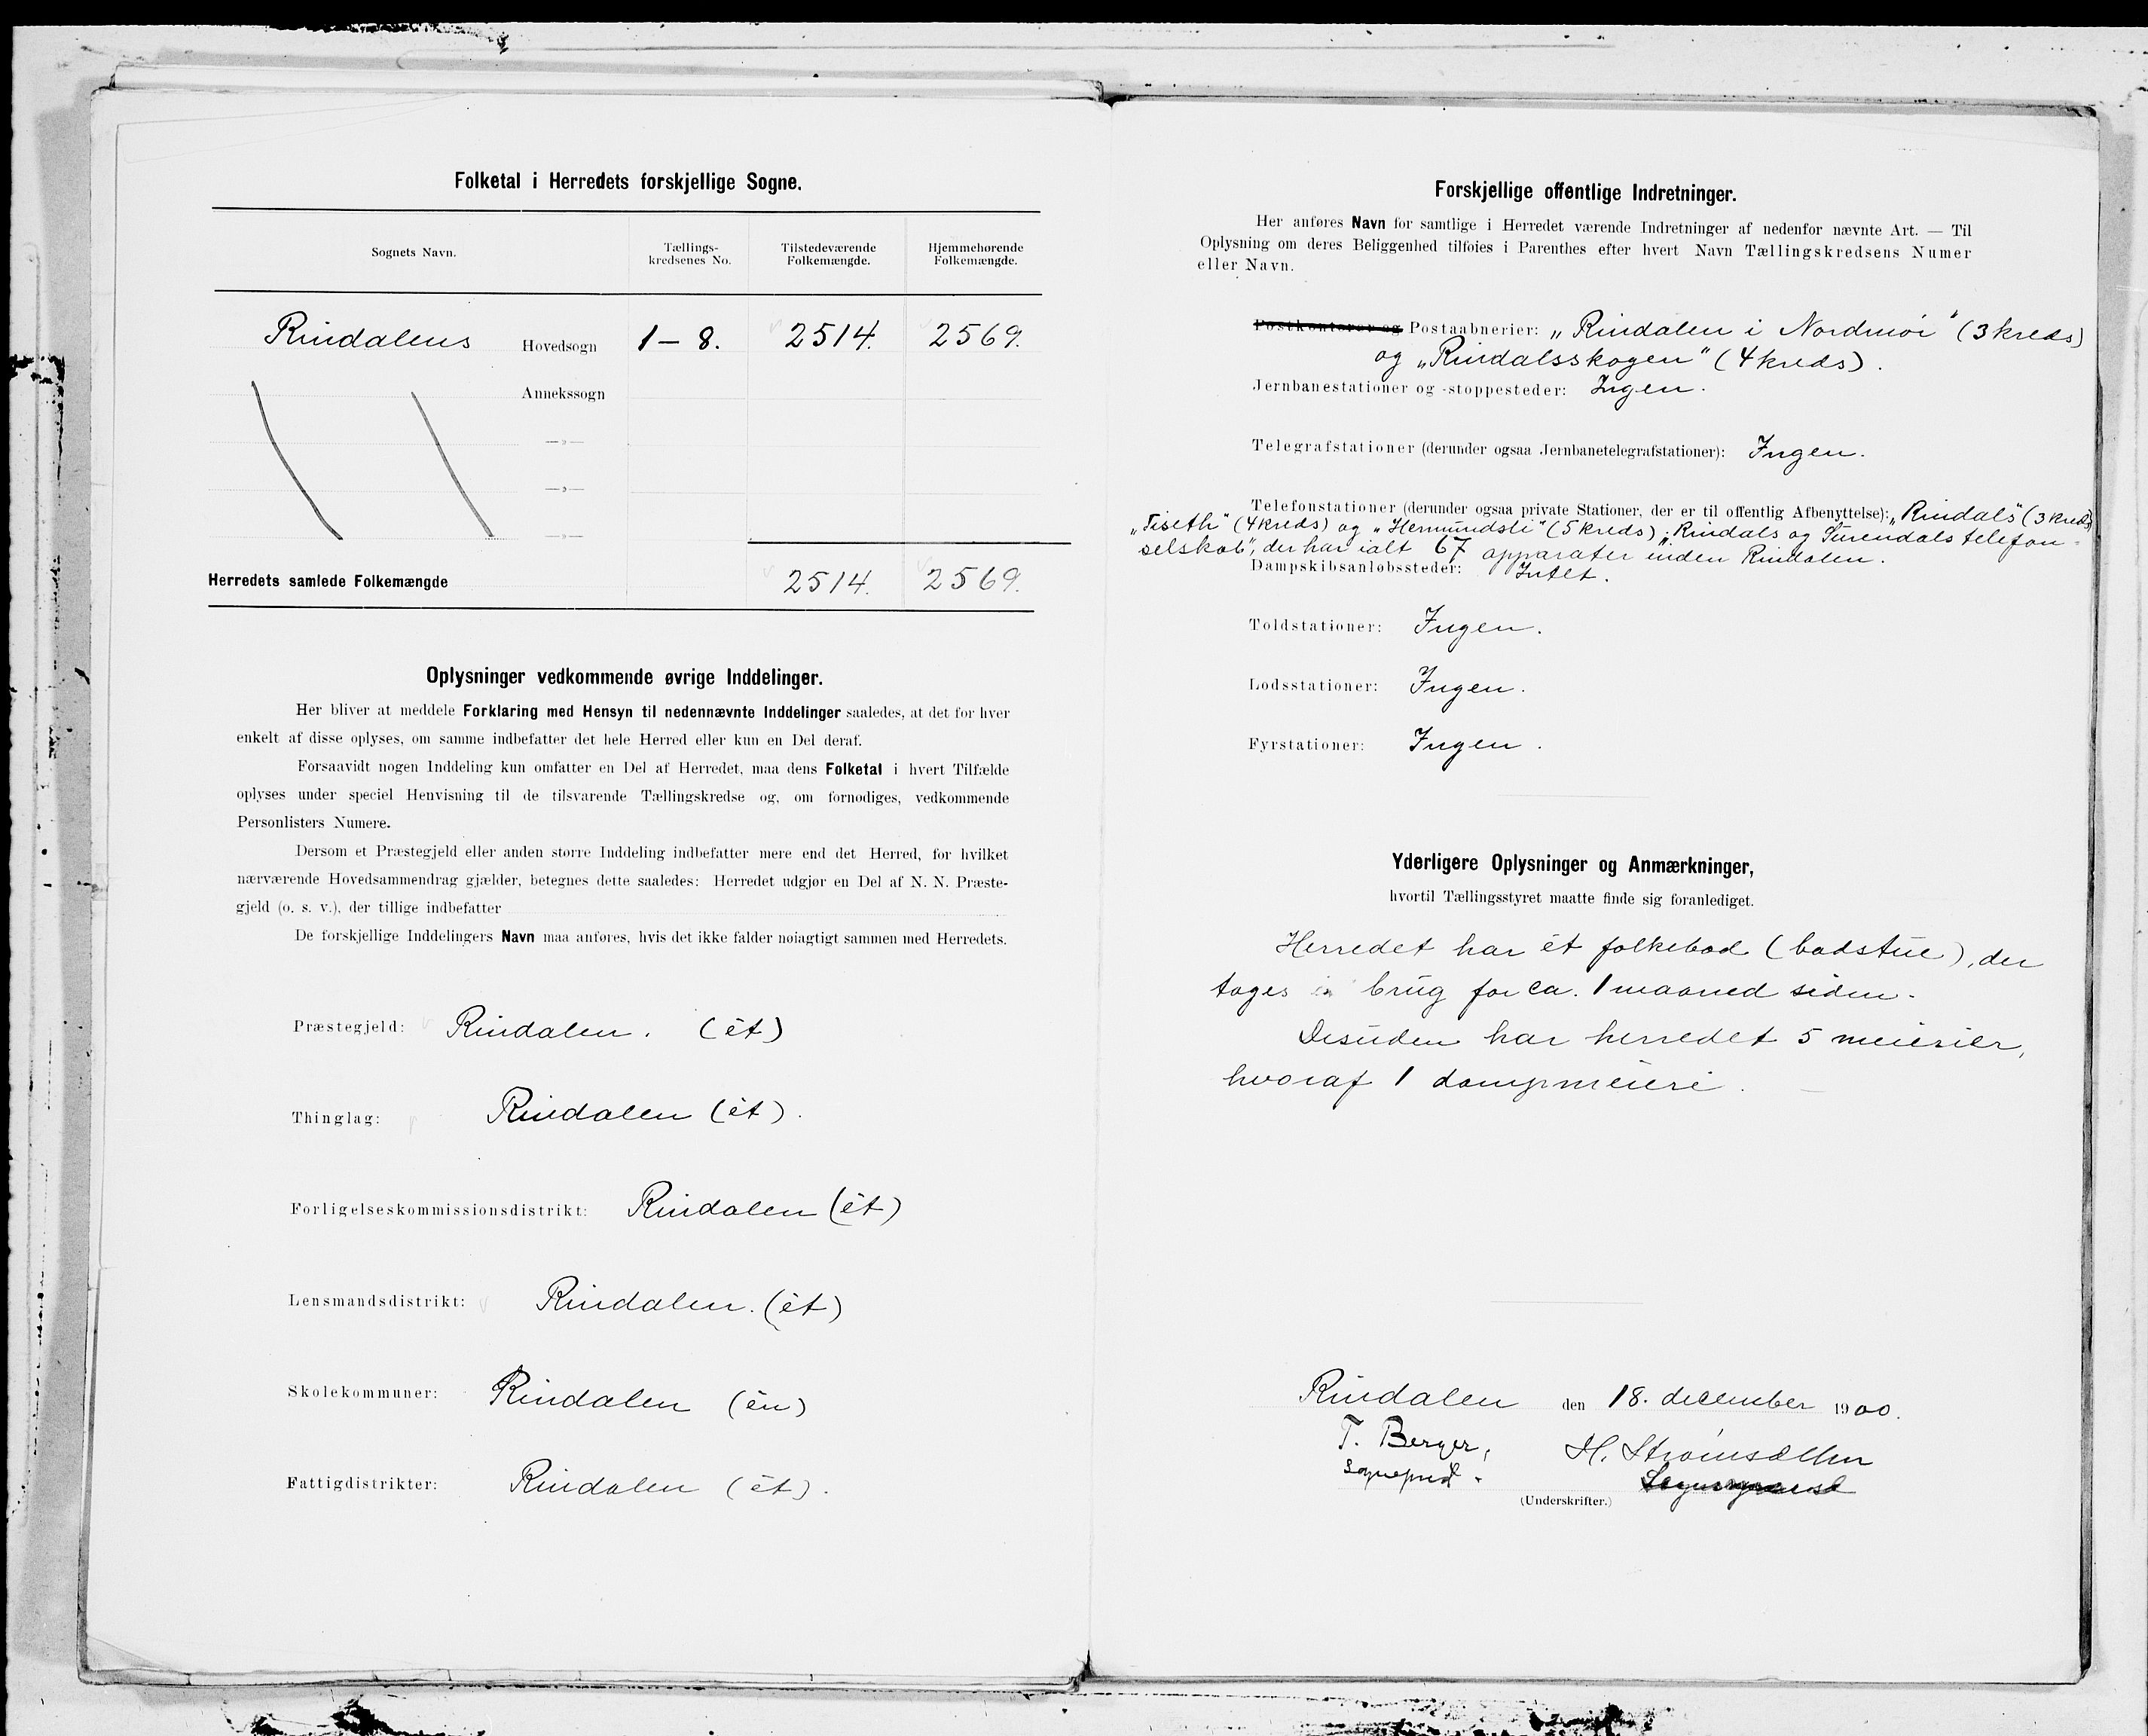 Folketal i Herredets forskjellige Sogne.
Sognets Navn.
Tællings-
kredsenes No.
Tilstedeværende
Folkemængde.
Hjemmehørende
Folkemængde.
Rindalens Hovedsogn 1–8. 2514. 2569.
Annekssogn
—»—
—»—
—»—
Herredets samlede Folkemængde 2514. 2569.
Oplysninger vedkommende øvrige Inddelinger.
Her bliver at meddele Forklaring med Hensyn til nedennævnte Inddelinger saaledes, at det for hver
enkelt af disse oplyses, om samme indbefatter det hele Herred eller kun en Del deraf.
Forsaavidt nogen Inddeling kun omfatter en Del af Herredet, maa dens Folketal i hvert Tilfælde
oplyses under speciel Henvisning til de tilsvarende Tællingskredse og, om fornødiges, vedkommende
Personlisters Numere.
Dersom et Præstegjeld eller anden større Inddeling indbefatter mere end det Herred, for hvilket
nærværende Hovedsammendrag gjælder, betegnes dette saaledes: Herredet udgjør en Del af N. N. Præste-
gjeld (o. s. v.), der tillige indbefatter
De forskjellige Inddelingers Navn maa anføres, hvis det ikke falder nøiagtigt sammen med Herredets.
Præstegjeld: Rindalen. (ét)
Thinglag: Rindalen (ét).
Forligelseskommissionsdistrikt: Rindalen (ét)
Lensmandsdistrikt: Rindalen. (ét)
Skolekommuner: Rindalen (én)
Fattigdistrikter: Rindalen (ét).
Forskjellige offentlige Indretninger.
Her anføres Navn for samtlige i Herredet værende Indretninger af nedenfor nævnte Art. — Til
Oplysning om deres Beliggenhed tilføies i Parenthes efter hvert Navn Tællingskredsens Numer
eller Navn.
Postkontorer og Postaabnerier: „Rindalen i Nordmør" (3 kreds)
og „Rindalsskogen" (4 kreds).
Jernbanestationer og -stoppesteder: Ingen.
Telegrafstationer (derunder ogsaa Jernbanetelegrafstationer): Ingen.
Telefonstationer (derunder ogsaa private Stationer, der er til offentlig Afbenyttelse): „Rindals" (3 kreds)
„Tiseth" (4 kreds) og „Hermundsli" (5 kreds) „Rindals og Surendals telefon-
selskab", der har ialt 67 apparater inden Rindalen.
Dampskibsanløbssteder: Intet.
Toldstationer: Ingen.
Lodsstationer: Ingen.
Fyrstationer: Ingen.
Yderligere Oplysninger og Anmærkninger,
hvortil Tællingsstyret maatte finde sig foranlediget.
Herredet har ét folkebad (badstue), der
toges i brug for ca. 1 maaned siden.
Desuden har herredet 5 meierier,
hvoraf 1 dampmeieri.
Rindalen den 18. december 1900.
T. Berger, H.
Sogneprest.
(Underskrifter.)